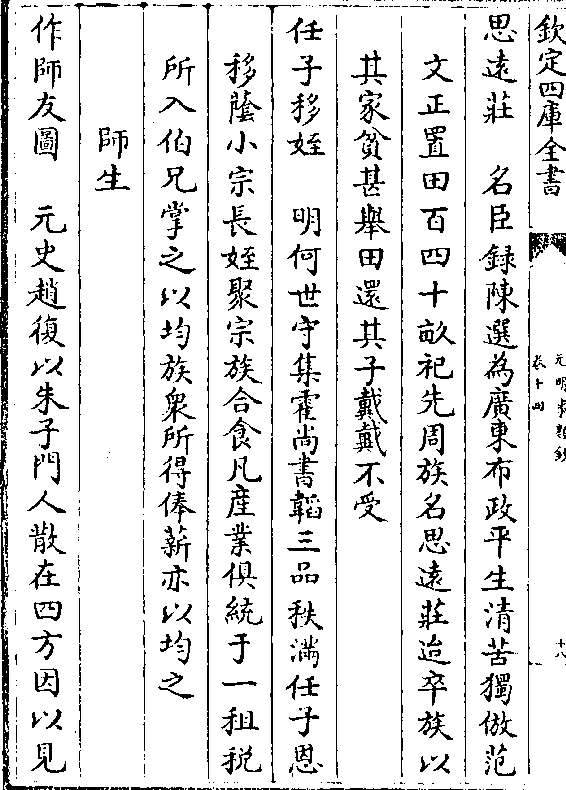 欽定四庫全書
元明事類鈔
卷十四
十八
思遠莊　名臣録陳選為廣東布政平生清苦獨倣范
文正置田百四十畝祀先周族名思遠莊迨卒族以
其家貧甚舉田還其子戴戴不受
任子移姪　明何世守集霍尚書韜三品秩滿任子恩
移蔭小宗長姪聚宗族合食凡産業俱統于一租税
所入伯兄掌之以均族衆所得俸薪亦以均之
師生
作師友圖　元史趙復以朱子門人散在四方因以見